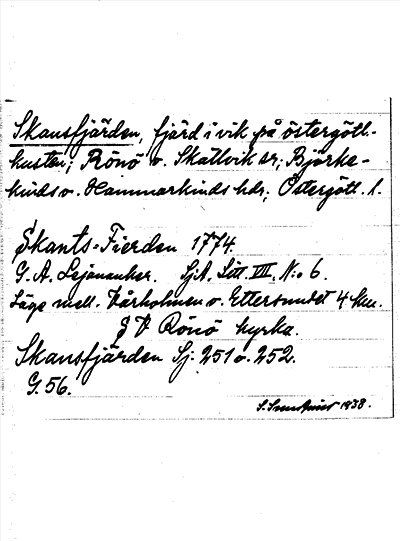 Skansfjärden, fjärd i vik på östergötl.-
kusten; Rönö o. Skällvik sr; Björke-
kinds o. Hammarkinds hdr; Östergötl. l.
Skants-Fierden 1774.
G. A. Lejonanker. SjA. Litt. VII. No 6.
Läge mell. Vårholmen o. Ettersundet 4 km.
Rönö kyrka.
Skansfjärden Sj: 251 o. 252.
G. 56.
1938.